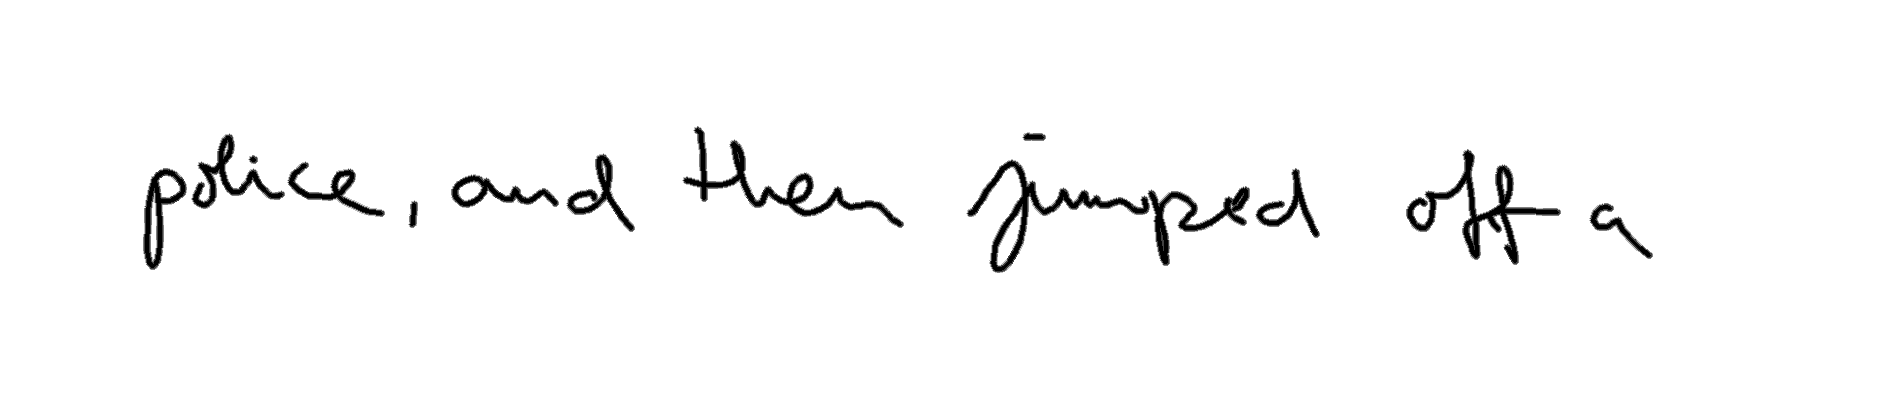 police, and then jumped off a